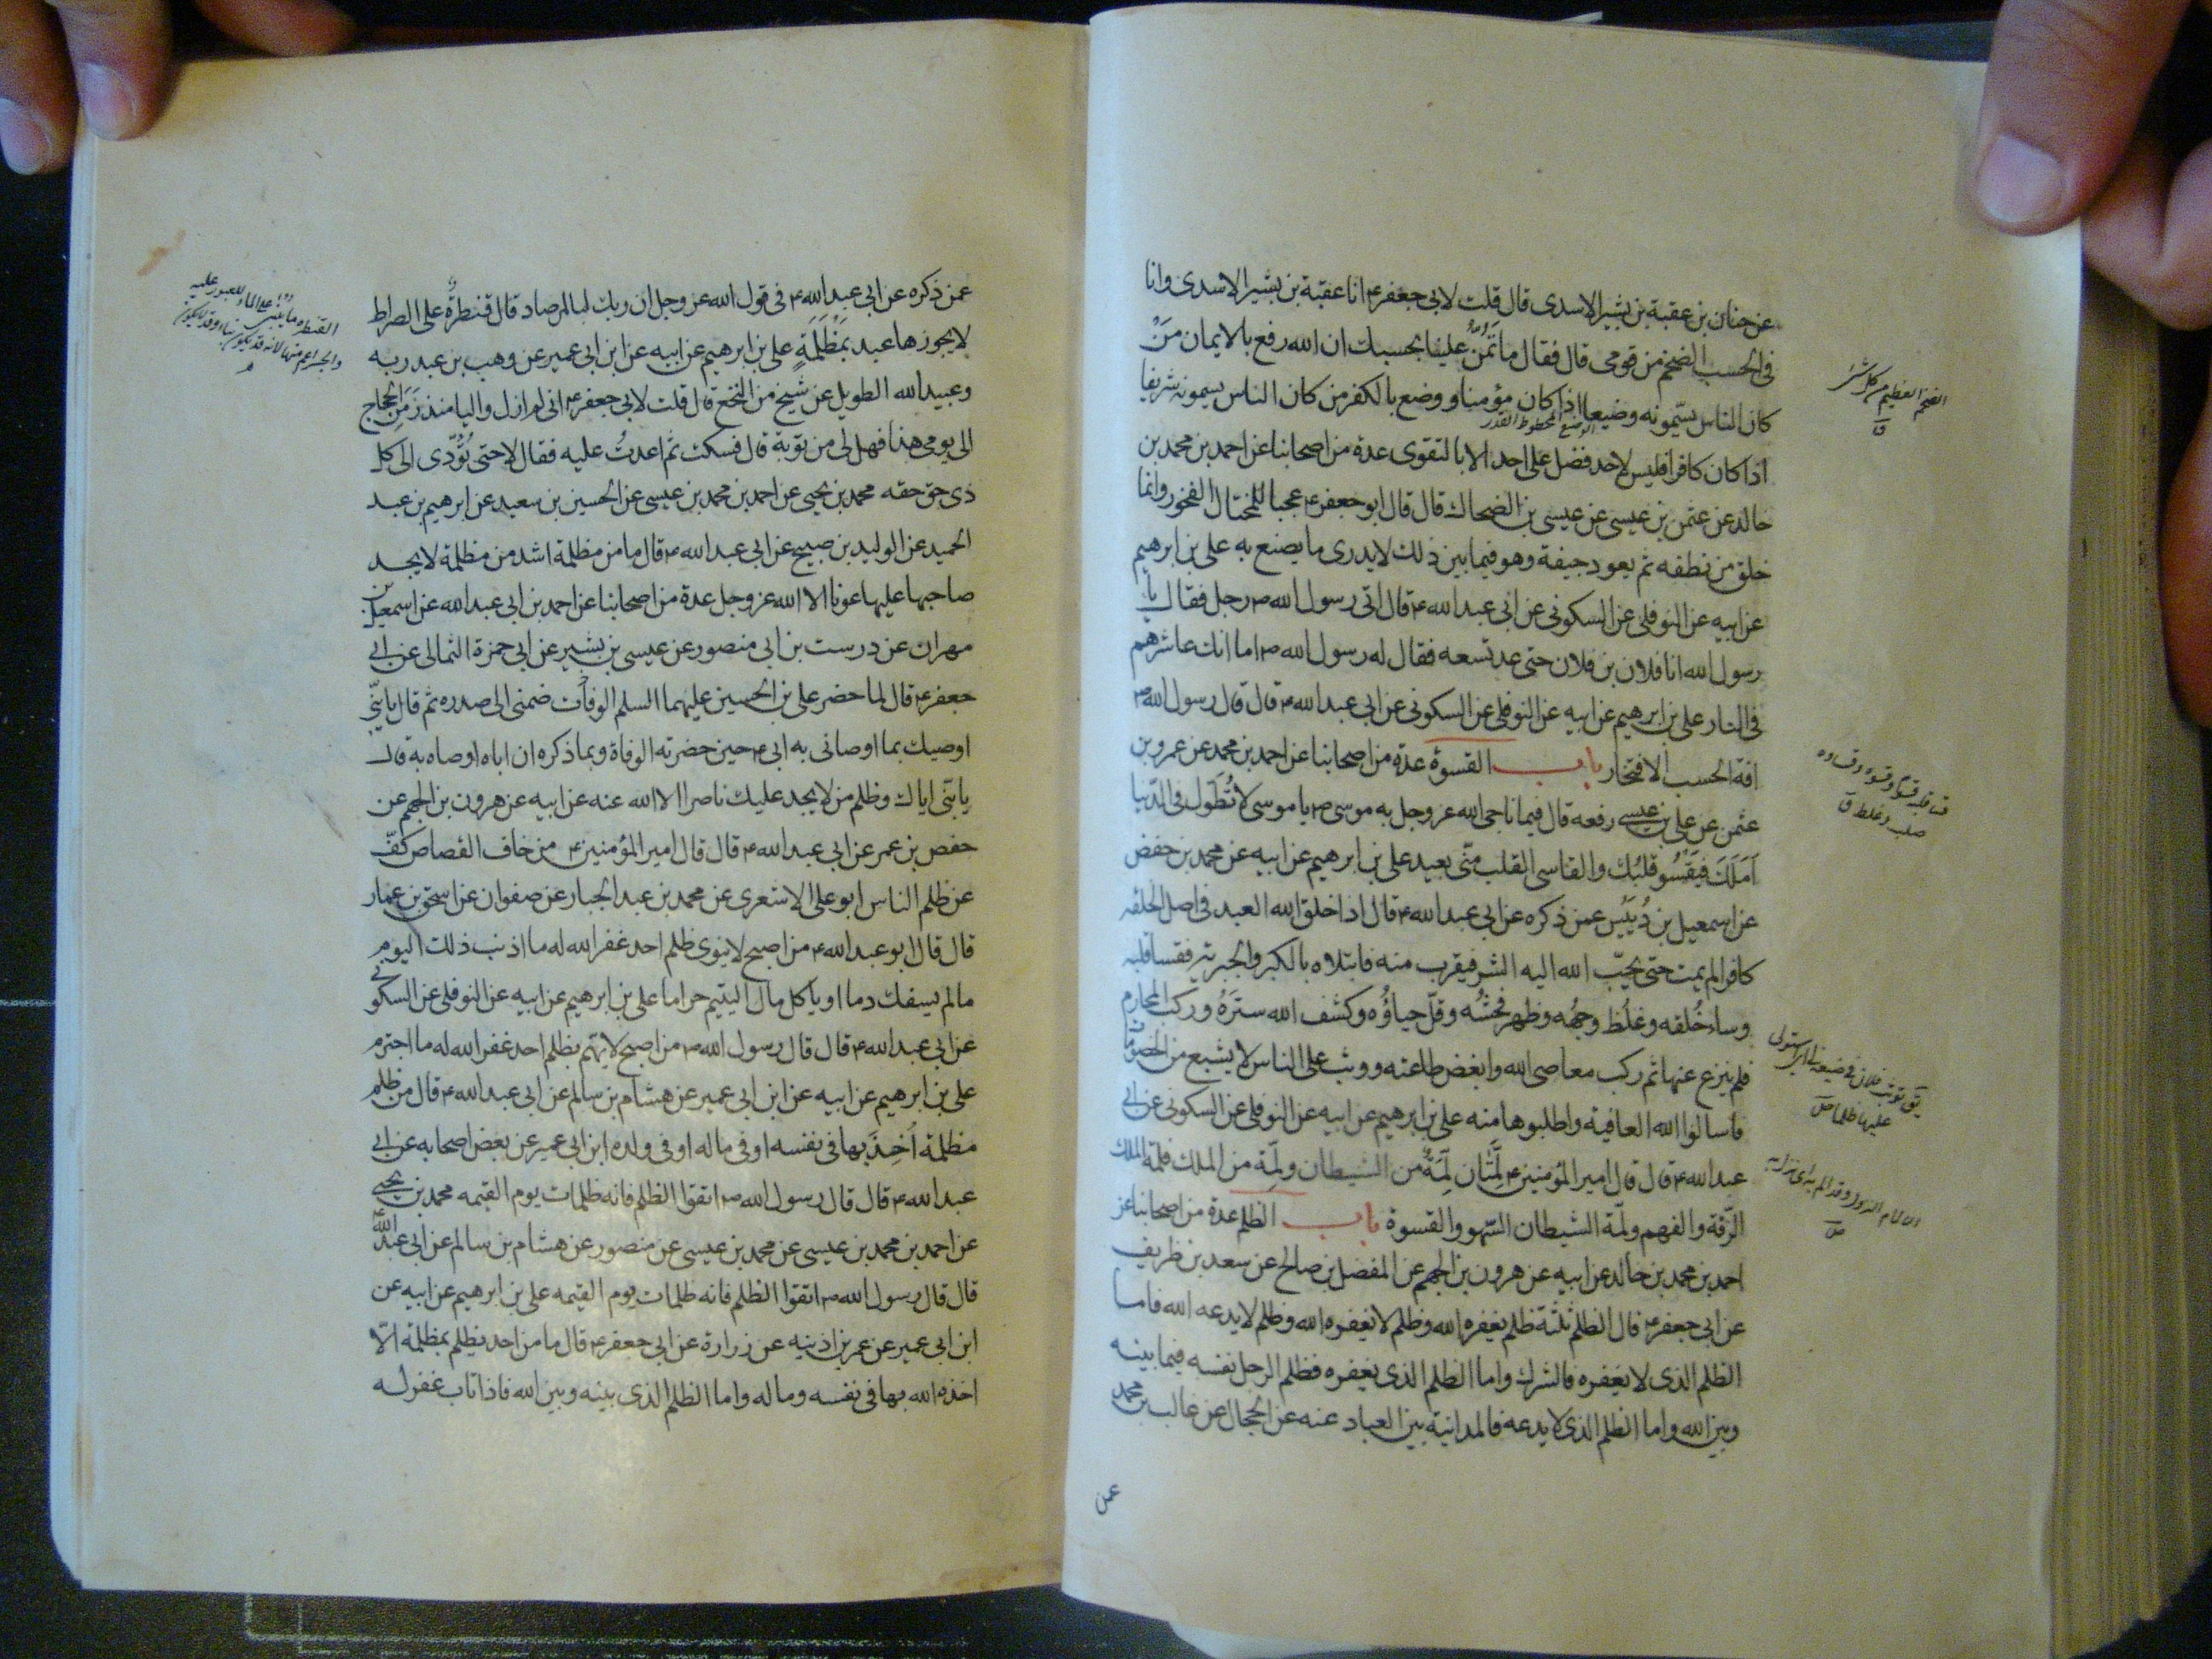 عن حنان بن عقبة بن بشير الاسدى قال قلت لابى جعفر ع انا عقبة بن بشير الاسدى وانا
فى الحسب الضخم من قومى قال فقال ما تَمُنُّ علينا بحسبك ان الله رفع بالايمان مَنْ
كان الناس يسمّونه وضيعا اذا كان مؤمنا ووضع بالكفر من كان الناس يسمونه شريفا
الوضيع المحطوط القدر
اذا كان كافرا فليس لاحد فضل على احد الا بالتقوى عدة من اصحابنا عن احمد بن محمد بن
خالد عن عثمن بن عيسى عن عيسى بن الضحاك قال قال ابو جعفر ع عجبا للمختال الفخور وانما
خلق من نطفه ثم يعود جيفة وهو فيما بين ذلك لا يدرى ما يصنع به على بن ابرهيم
عن ابيه عن النوفلى عن السكونى عن ابى عبد الله ع قال اتى رسول الله ص رجل فقال يا
رسول الله انا فلان بن فلان حتى عد تسعه فقال له رسول الله ص اما انك عاشرهم
فى النار على بن ابرهيم عن ابيه عن النوفلى عن السكونى عن ابى عبد الله ع قال قال رسول الله ص
افة الحسب الافتخار باب القسوة عدة من اصحابنا عن احمد بن محمد عن عمرو بن
عثمن عن على بن عيسى رفعه قال فيما ناجى الله عز وجل به موسى ص يا موسى لا تُطَول فى الدّنيا
اَمَلَكَ فيَقسُو قلبُك والقاسى القلب منّى بعيد على بن ابرهيم عن ابيه عن محمد بن حفص
عن اسمعيل بن دُبَيس عمن ذكره عن ابى عبد الله ع قال اذا خلق الله العبد فى اصل الخلقه
كافرا لم يمت حتى يحبّب الله اليه الشر فيقرب منه فابتلاه بالكبر والجبرية فقسا قلبه
وساء خُلقه وغلُظ وجهُه وظهر فحشُه وقلّ حياؤُه وكشف الله سترَهُ وركب المحارم
فلم ينزع عنها ثم ركب معاصى الله وابغض طاعته ووثب على الناس لا يشبع من الخصومات
فاسالوا الله العافية واطلبوها منه على بن ابرهيم عن ابيه عن النوفلى عن السكونى عن ابى
عبد الله ع قال قال امير المؤمنين ع لَمَّتان لَمَّةٌ من الشيطان ولمّة من الملك فلمة الملك
الرّقة والفهم ولمّة الشيطان السّهو والقسوة باب الظلم عدة من اصحابنا عن
احمد بن محمد بن خالد عن ابيه عن هرون بن الجهم عن المفضل بن صالح عن سعد بن ظريف
عن ابى جعفر ع قال الظلم ثلثة ظلم يغفره الله وظلم لا يغفره الله وظلم لا يدعه الله فاما
الظلم الذى لا يغفره فالشرك واما الظلم الذى يغفره فظلم الرجل نفسه فيما بينه
وبين الله واما الظلم الذى لا يدعه فالمداينة بين العباد عنه عن الحجال عن غالب بن محمد
عمن
الضخم العظيم من كل شئ
ق
قسا قلبه قسوا وقسوة وقساوة
صلب وغلظ ق
يق توثب فلان فى ضيعة لى اى استولى
عليها ظلما ص
الالمام النزول وقد الم به اى نزل به
ص
عمن ذكره عن ابى عبد الله ع فى قول الله عز وجل ان ربك لبالمرصاد قال قنطرةٌ على الصراط
لا يجوزها عبد بمَظْلَمَةٍ على بن ابرهيم عن ابيه عن ابن ابى عمير عن وهب بن عبد ربه
وعبيد الله الطويل عن شيخ من النخع قال قلت لابى جعفر ع انى لم ازل واليا منذ زَمَن الحجاج
الى يومى هذا فهل لى من توبة قال فسكت ثم اعدتُ عليه فقال لا حتى تُؤَدّى الى كل
ذى حق حقه محمد بن يحيى عن احمد بن محمد بن عيسى عن الحسين بن سعيد عن ابرهيم بن عبد
الحميد عن الوليد بن صبيح عن ابى عبد الله ع قال ما من مظلمة اشد من مظلمة لا يجد
صاحبها عليها عونا الا الله عز وجل عدة من اصحابنا عن احمد بن ابى عبد الله عن اسمعيل بن
مهران عن درست بن ابى منصور عن عيسى بن بشير عن ابى حمزة الثمالى عن ابى
جعفر ع قال لما حضر على بن الحسين عليهما السلم الوفات ضمنى الى صدره ثم قال يا بنىّ
اوصيك بما اوصانى به ابى ع حين حضرته الوفاة وبما ذكره ان اباه اوصاه به قال
يا بنّى اياك وظلم من لا يجد عليك ناصرا الا الله عنه عن ابيه عن هرون بن الجهم عن
حفص بن عمر عن ابى عبد الله ع قال قال امير المؤمنين ع من خاف القصاص كفّ
عن ظلم الناس ابو على الاشعرى عن محمد بن عبد الجبار عن صفوان عن اسحق بن عمار
قال قال ابو عبد الله ع من اصبح لا ينوى ظلم احد غفر الله له ما اذنب ذلك اليوم
ما لم يسفك دما او ياكل مال اليتيم حراما على بن ابرهيم عن ابيه عن النوفلى عن السكونى
عن ابى عبد الله ع قال قال رسول الله ص من اصبح لا يهتم بظلم احد غفر الله له ما اجترم
على بن ابرهيم عن ابيه عن ابن ابى عمير عن هشام بن سالم عن ابى عبد الله ع قال من ظلم
مظلمة اُخِذَ بها فى نفسه او فى ماله او فى ولده ابن ابى عمير عن بعض اصحابه عن ابى
عبد الله ع قال قال رسول الله ص اتقوا الظلم فانه ظلمات يوم القيمه محمد بن يحيى
عن احمد بن محمد بن عيسى عن محمد بن عيسى عن منصور عن هشام بن سالم عن ابى عبد الله ع
قال قال رسول الله ص اتقوا الظلم فانه ظلمات يوم القيمه على بن ابرهيم عن ابيه عن
ابن ابى عمير عن عمر بن اذينه عن زرارة عن ابى جعفر ع قال ما من احد يظلم بمظلمة الّا
اخذه الله بها فى نفسه وماله واما الظلم الذى بينه وبين الله فاذا تاب غفر له
القنطرة ما يبنى على الماء للعبور عليه
والجسر اعم منها لانه قد يكون بناء وقد لا يكون
م